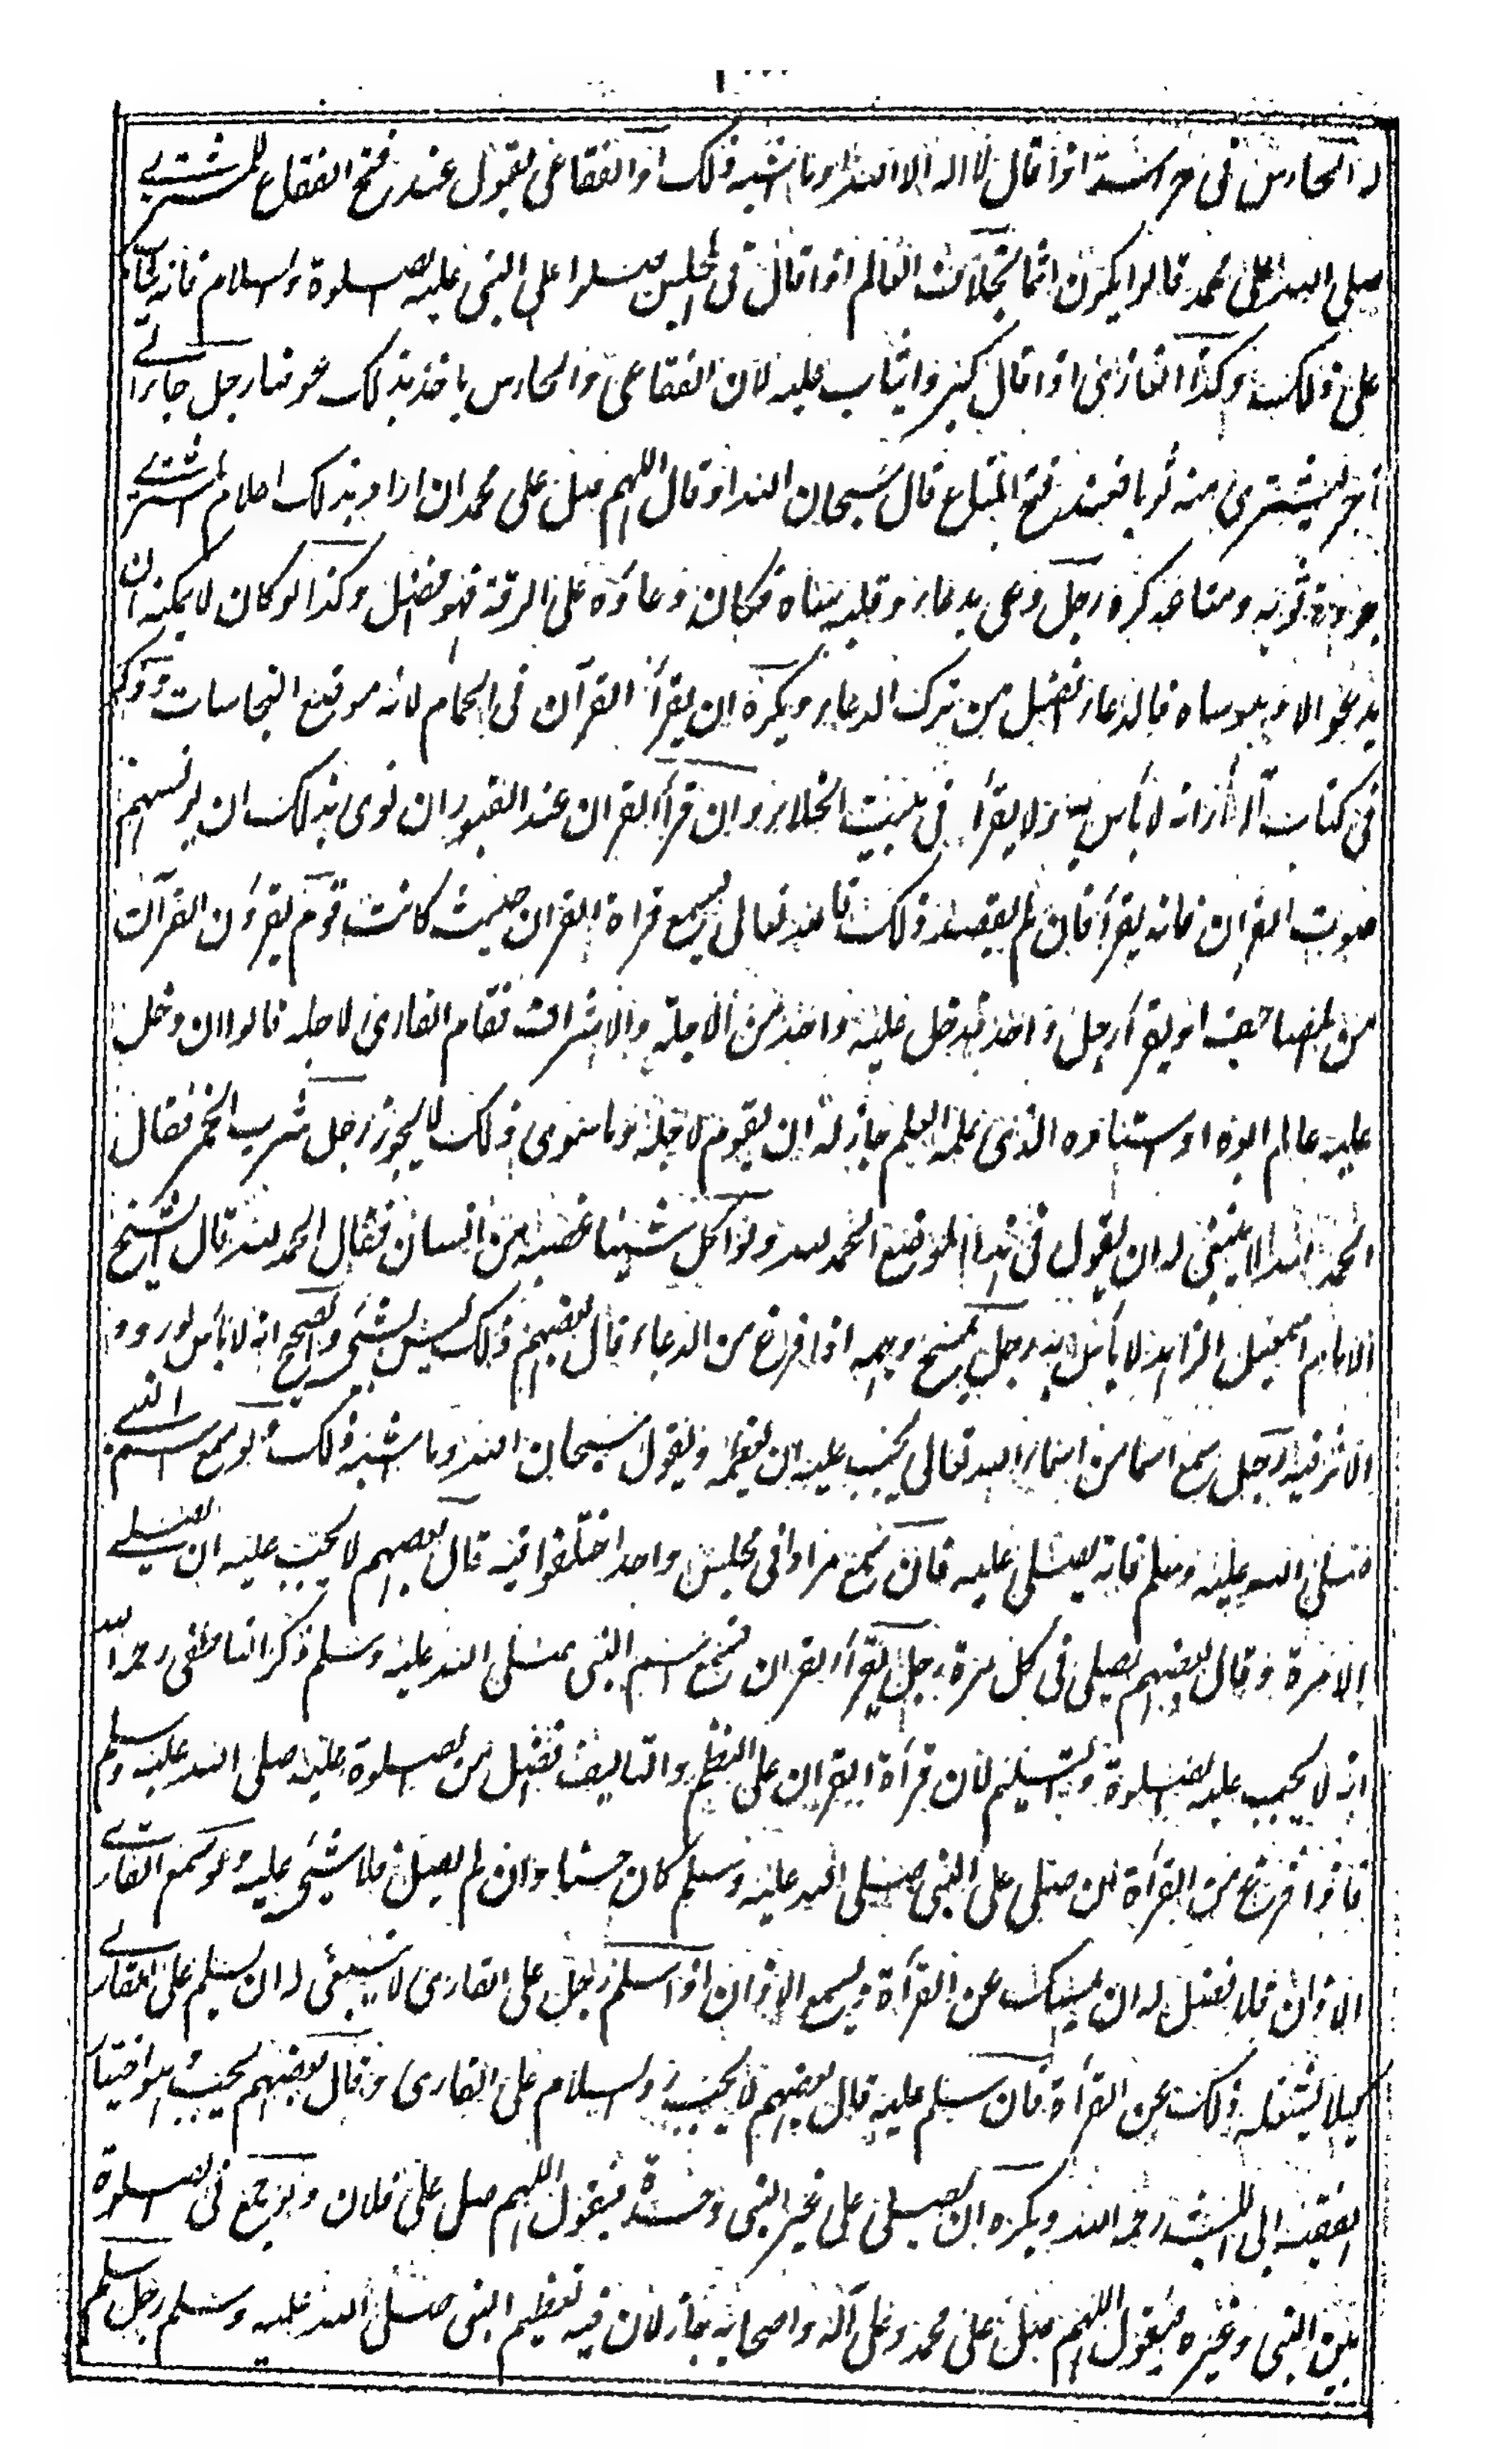 الحارس فى حراسته اذا قال لا اله الا الله او ما اشبه ذلك او الفقاعى يقول عند فتح الفقاع للمشترى
صلى الله على محمد قالوا يكون اثما بخلاف العالم اذا قال فى المجلس صلوا على النبى عليه الصلوة والسلام فانه يثاب
على ذلك وكذا الغازى اذا قال كبروا يثاب عليه لان الفقاعى والحارس ياخذ بذلك عوضا رجل جاء الى
تاجر ليشترى منه ثوبا فعند فتح المتاع قال سبحان الله او قال اللهم صل على محمد ان اراد بذلك اعلام المشترى
جودة ثوبه ومتاعه كره رجل دعى بدعاء وقلبه ساه فكان دعاؤه على الرقة فهو افضل وكذا لو كان لا يمكنه ان
يدعو الا وهو ساه فالدعاء افضل من ترك الدعاء ويكره ان يقرأ القرآن فى الحمام لانه موضع النجاسات وذكر
فى كتاب الآثار انه لا بأس به ولا يقرأ فى بيت الخلاء وان قرأ القران عند القبور ان نوى بذلك ان يونسهم
صوت القران فانه يقرأ فان لم يقصد ذلك فالله تعالى يسمع قراءة القران حيث كانت قوم يقرؤن القرآن
من المصاحف او يقرأ رجل واحد فدخل عليه واحد من الاجلة والاشراف فقام القارى لاجله قالوا ان دخل
عليه عالم او ابوه او استاذه الذى علمه العلم جاز له ان يقوم لاجله وما سوى ذلك لا يجوز رجل شرب الخمر فقال
الحمد لله لا ينبغى له ان يقول فى هذا الموضع الحمد لله ولو اكل شيئا غصبه من انسان فقال الحمد لله قال الشيخ
الامام اسمعيل الزاهد لا بأس به رجل يمسح وجهه اذا فرغ من الدعاء قال بعضهم ذلك ليس بشئ والصحيح انه لا بأس لورود
الاثر فيه رجل سمع اسما من اسماء الله تعالى يجب عليه ان يعظمه ويقول سبحان الله وما اشبه ذلك ولو سمع اسم النبى
صلى الله عليه وسلم فانه يصلى عليه فان سمع مرارا فى مجلس واحد اختلفوا فيه قال بعضهم لا يجب عليه ان يصلى
الا مرة وقال بعضهم يصلى فى كل مرة رجل يقرأ القران فسمع اسم النبى صلى الله عليه وسلم ذكر الناطفى رحمه الله
انه لا يجب عليه الصلوة والتسليم لان قرأة القران على النظم والتاليف افضل من الصلوة عليه صلى الله عليه وسلم
فاذا فرغ من القرأة ان صلى على النبى صلى الله عليه وسلم كان حسنا وان لم يصل فلا شئ عليه ولو سمع القارى
الاذان فالافضل له ان يمسك عن القرأة ويسمع الاذان اذا سلم رجل على القارى لا ينبغى له ان يسلم على القارى
كيلا يشغله ذلك عن القرأة فان سلم عليه قال بعضهم لا يجب رد السلام على القارى وقال بعضهم يجب وهو اختيار
الفقيه ابى الليث رحمه الله ويكره ان يصلى على غير النبى وحده فيقول اللهم صل على فلان ولو جمع فى الصلوة
بين النبى وغيره فيقول اللهم صل على محمد وعلى آله واصحابه جاز لان فيه تعظيم النبى صلى الله عليه وسلم رجل سلم